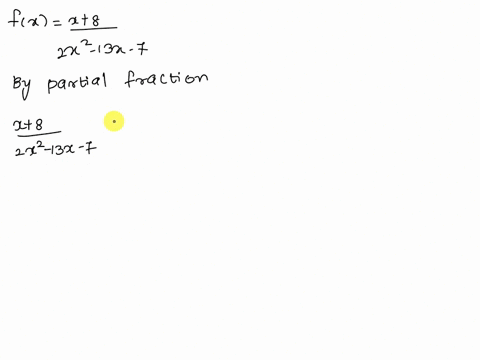 f(x) = x+8 / 2x² - 13x - 7
By partial fraction
x+8 / 2x² - 13x - 7